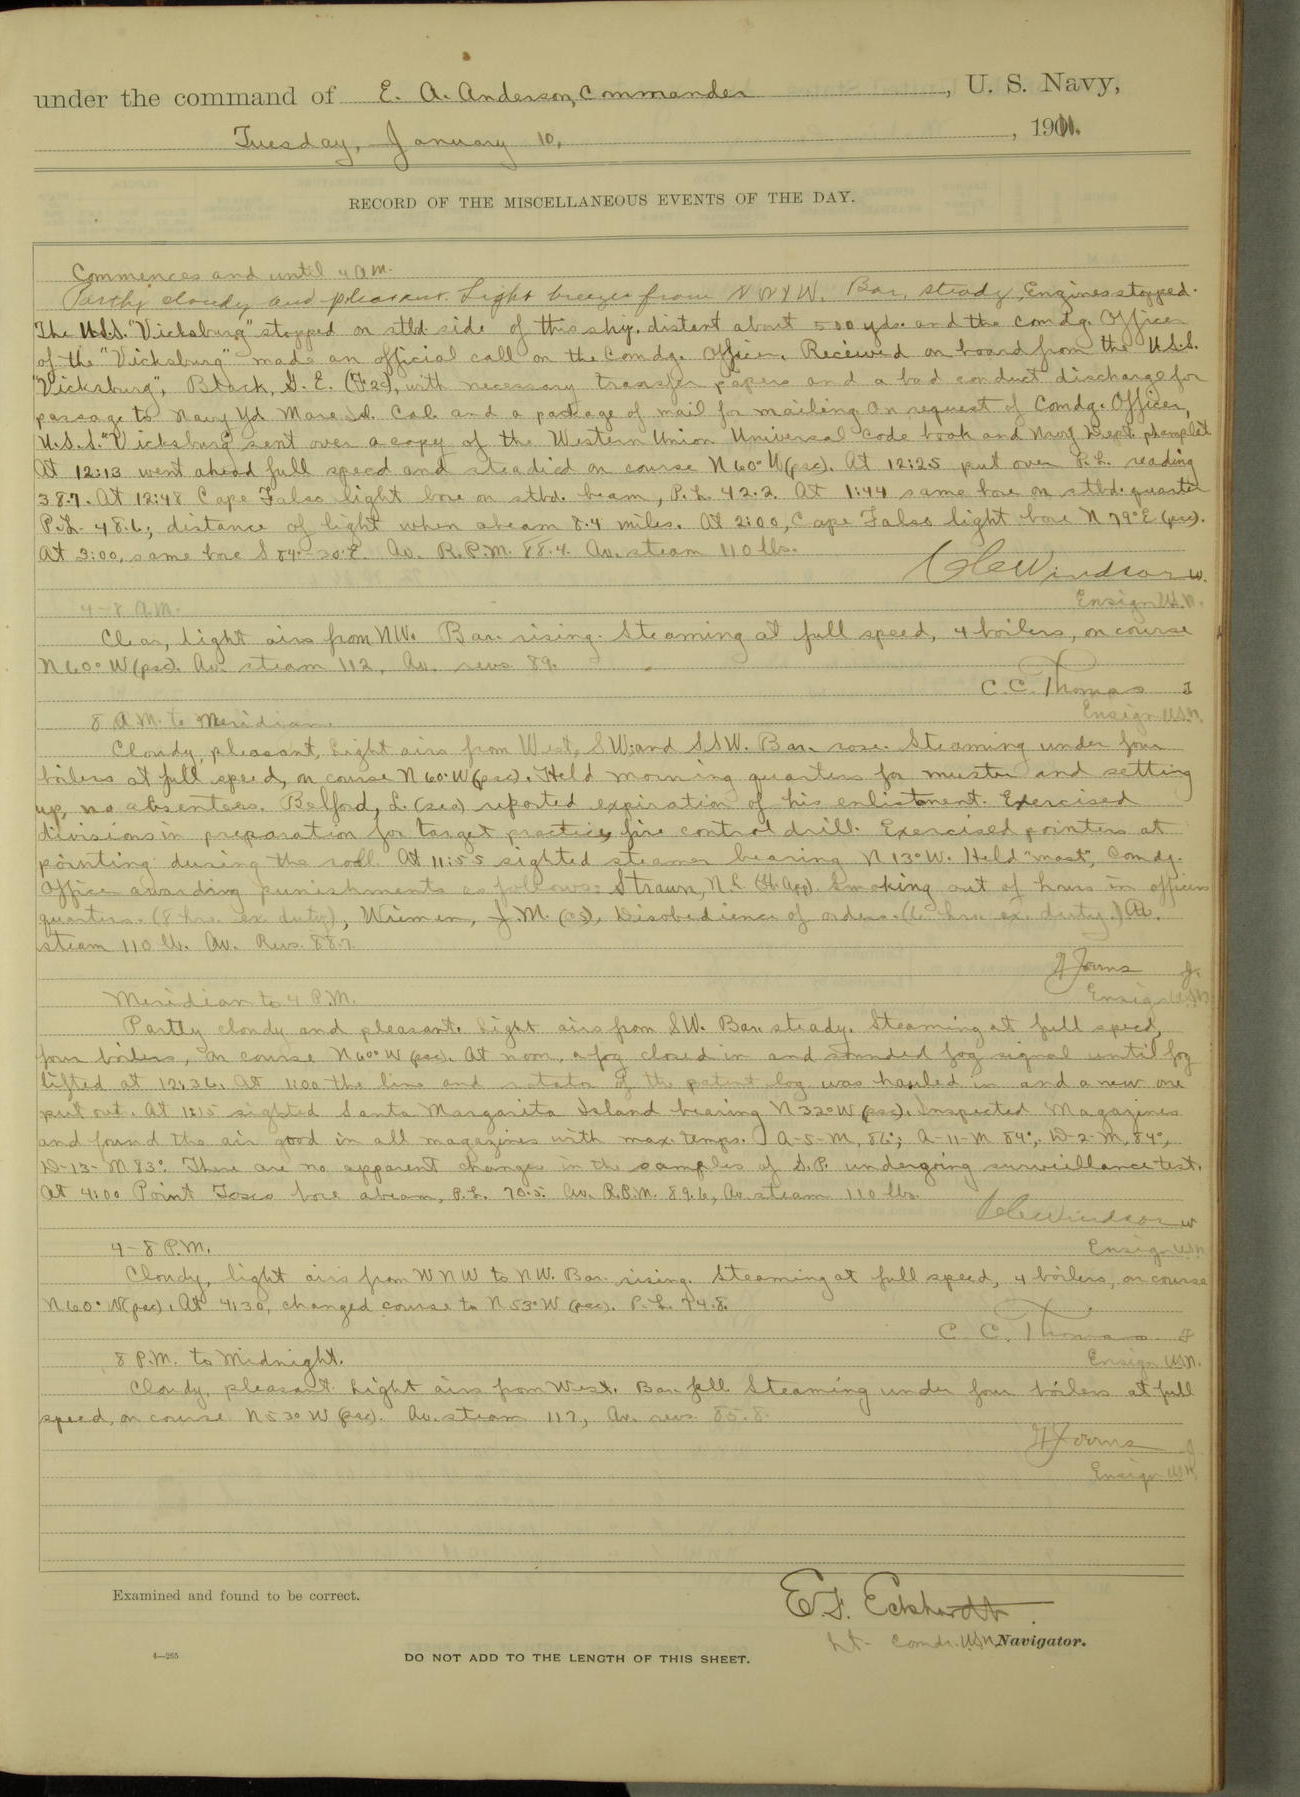 under the command of E. A. Anderson, Commander, U. S. Navy,
Tuesday, January 10, 1911.
RECORD OF THE MISCELLANEOUS EVENTS OF THE DAY.
Commences and until 4 a.m.
Partly cloudy and pleasant. Light breezes from Bar. steady, Engines stopped.
The U.S.S. "Vicksburg" stopped on stbd. side of this ship, distant about 500 yds. and the Comdg. Officer
of the "Vicksburg" made an official call on the Comdg. Officer. Received on board from the U.S.S.
"Vicksburg", Black, S. E. (F2c), with necessary transfer papers and a bad conduct discharge for
passage to Navy Yd Mare Id. Cal. and a package of mail for mailing. On request of Comdg. Officer,
U.S.S. "Vicksburg" sent over a copy of the Western Union Universal Code book and Navy Dept. phamplet
At 12:13 went ahead full speed and steadied on course N60°W(psc). At 12:25 put over P.L. reading
38.7. At 12:48 Cape Falso light bore on stbd. beam, P.L. 42.2. At 1:44 same bore on stbd. quarter
P.L. 48.6; distance of light when abeam 8.4 miles. At 2:00, Cape Falso light bore N79°E (psc).
At 3:00, same bore S 84°-30'E. Av. R.P.M. 88.4. Av. steam 110 lbs.
Windsor W.
Ensign U.S.N.
4-8 A.M.
Clear, light airs from NW. Bar. rising. Steaming at full speed, 4 boilers, on course
N60°W(psc). Av. steam 112, Av. revs. 89.
C. C. Thomas
Ensign U.S.N.
8 A.M. to Meridian.
Cloudy, pleasant, Light airs from West, SW. and SSW. Bar. rose. Steaming under four
boilers at full speed, on course N60°W(psc). Held morning quarters for muster and setting
up, no absentees. Belford, L. (sea) reported expiration of his enlistment. Exercised
divisions in preparation for target practice, fire control drill. Exercised pointers at
pointing during the roll. At 11:55 sighted steamer bearing N13°W. Held "mast", Comdg.
Officer awarding punishments as follows: Straun, N. L. (H. App). Smoking out of hours in officers
quarters. (8 hrs. ex. duty), J. M. Disobedience of orders. ( hrs. ex. duty.) Av.
steam 110 lb. Av. Revs. 88.7
Ensign U.S.N.
Meridian to 4 P.M.
Partly cloudy and pleasant. Light airs from SW. Bar. steady. Steaming at full speed,
four boilers, on course N60°W (psc). At noon, a fog closed in and sounded fog signal until fog
lifted at 12:36. At 1:00 the line and rotator of the patent log was hauled in and a new one
put out. At 1:15 sighted Santa Margarita Island bearing N32°W (psc). Inspected Magazines
and found the air good in all magazines with max. temps. A-5-M, 86°; A-11-M 84°, D-2-M, 84°,
D-13-M 83°. There are no apparent changes in the samples of S.P. undergoing surveillance test.
At 4:00 Point Tosco bore abeam, P.L. 70.5. Av. R.P.M. 89.6, Av. steam 110 lbs.
Windsor W
Ensign U.S.N.
4-8 P.M.
Cloudy, light airs from WNW to NW. Bar. rising. Steaming at full speed, 4 boilers, on course
N60°W(psc). At 4:30, changed course to N53°W (psc). P.L. 74.8.
C. C. Thomas
Ensign U.S.N.
8 P.M. to Midnight.
Cloudy, pleasant. Light airs from West. Bar. fell. Steaming under four boilers at full
speed, on course N53°W (psc). Av. steam 117, Av. revs. 85.8.
Ensign U.S.N.
Examined and found to be correct.
E. F. Eckhardt
Lt- Comdr. U.S.N. Navigator.
4—265
DO NOT ADD TO THE LENGTH OF THIS SHEET.